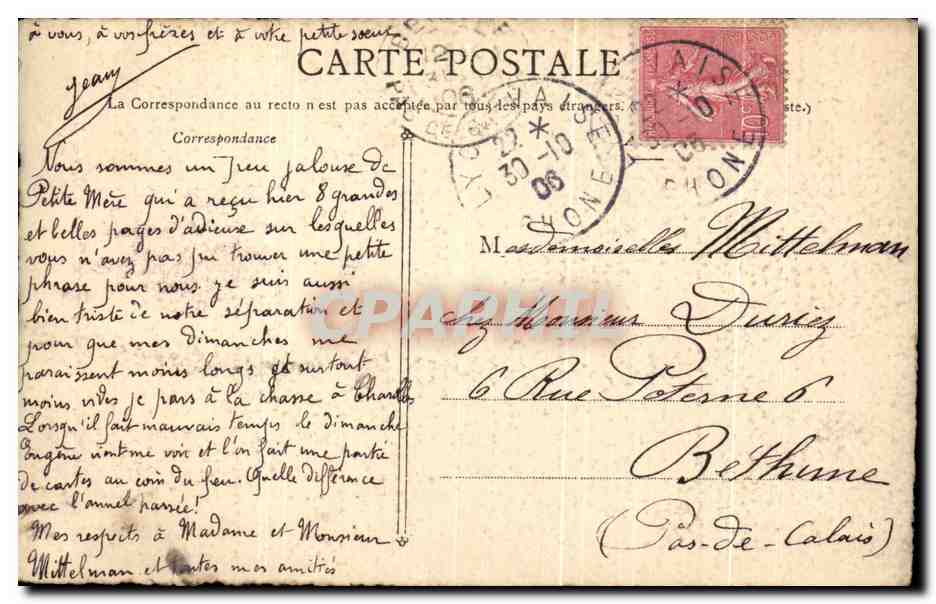 à vous, à vos frères et à votre petite soeur
Jeany
CARTE POSTALE
La Correspondance au recto n'est pas acceptée par tous les pays étrangers.
Correspondance
Nous sommes un peu jalouse de
Petite Mère qui a reçu hier 8 grandes
et belles pages d'adieuse sur lesquelles
vous n'avez pas pu trouver une petite
phrase pour nous je suis aussi
bien triste de notre séparation et
pour que mes dimanches me
paraissent moins longs et surtout
moins vides je pars à la chasse à Charolles
Lorsqu'il fait mauvais temps le dimanche
Eugène vient me voir et l'on fait une partie
de cartes au coin du feu. Quelle différence
avec l'année passée!
Mes respects à Madame et Monsieur
Mittelman et toutes mes amitiés
LYON VAISE
22 *
30 -10
06
RHONE
LYON VAISE
06
RHONE
10
Mesdemoiselles Mittelman
chez Monsieur Duriez
6 Rue Poterne 6
Béthune
(Pas-de-Calais)
CPARHTL